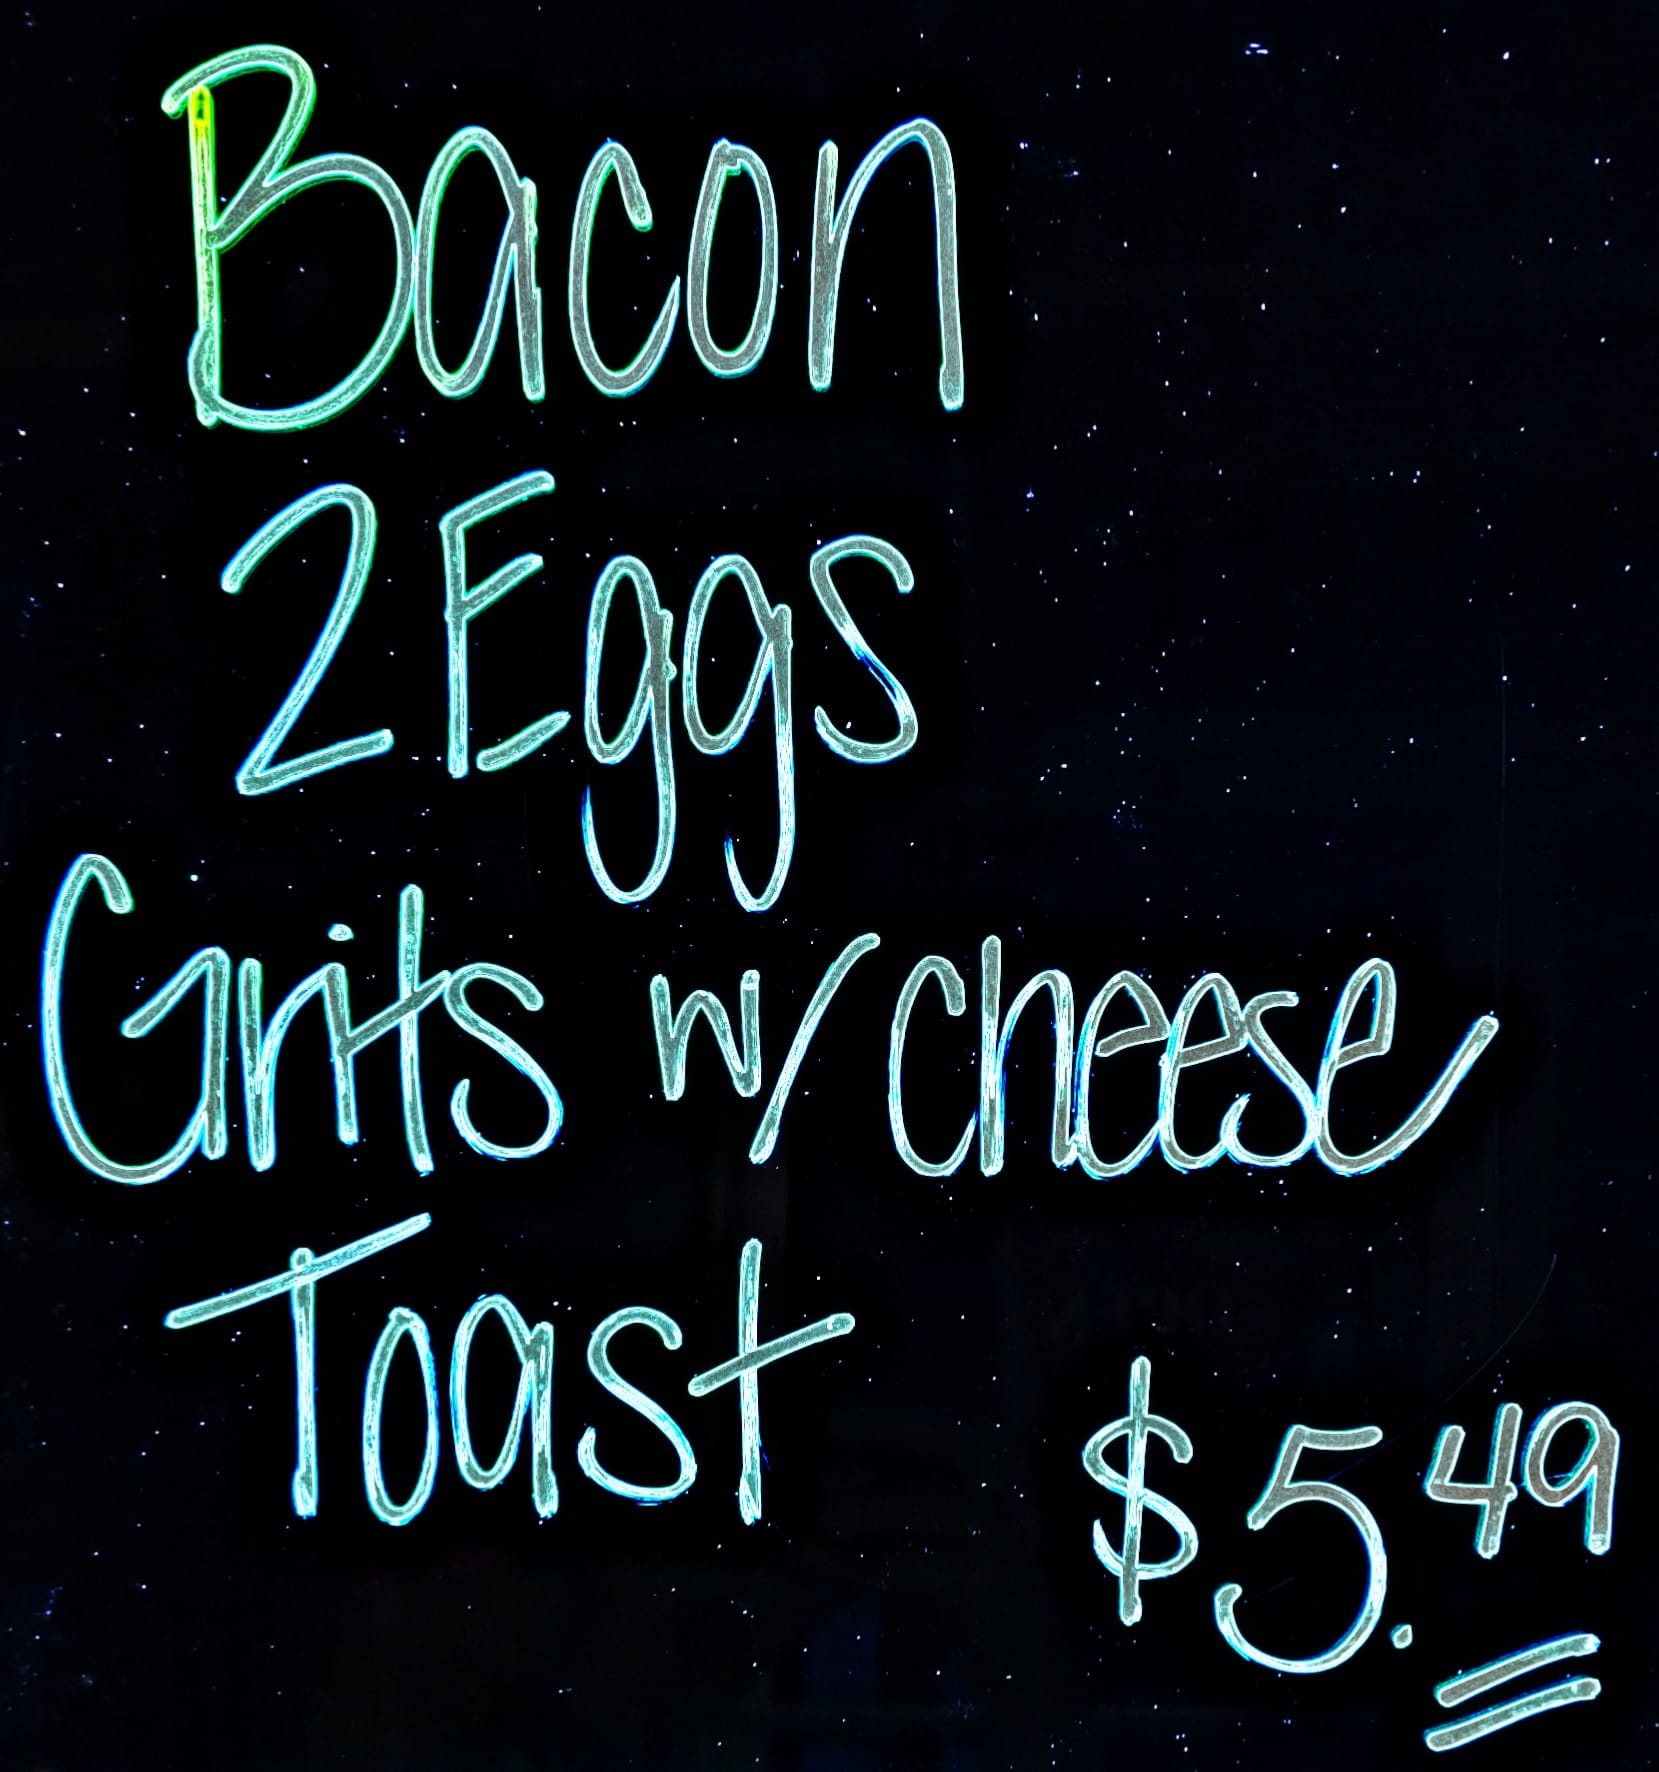 Bacon
2 Eggs
Grits w/ cheese
Toast
$5.49